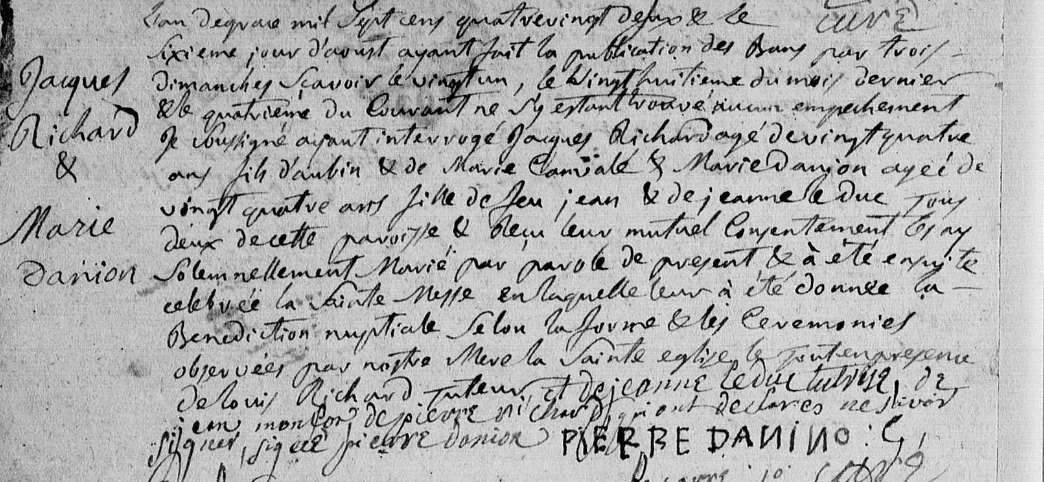 curé
L'an de grace mil Sept cens quatrevingt deux & le
Sixieme jour d'aoust ayant fait la publication des Bans par trois
dimanches Sçavoir le vingt un, le vingt huitieme du mois dernier
& le quatriéme du Courant ne S'y estant trouvé aucun empechement
Je Soussigné ayant interrogé Jacques Richard agé de vingt quatre
ans fils d'aubin & de Marie & Marie Danion agée de
vingt quatre ans fille de feu jean & de jeanne le duc tous
deux de cette paroisse & Reçu leur mutuel Consentement les ay
Solemnellement Marié par parole de present & à été ensuite
celebrée la Sainte Messe en laquelle leur à été donnée la
Benediction nuptiale Selon la forme & les Ceremonies
observées par nostre Mere la Sainte eglise, le tout en presence
de louis Richard tuteur, et de jeanne le duc tutrise, de
jean de pierre richard qui ont declares ne savoir
signer, signee pierre danion PIERRE DANINO : G,
Jacques
Richard
&
Marie
Danion